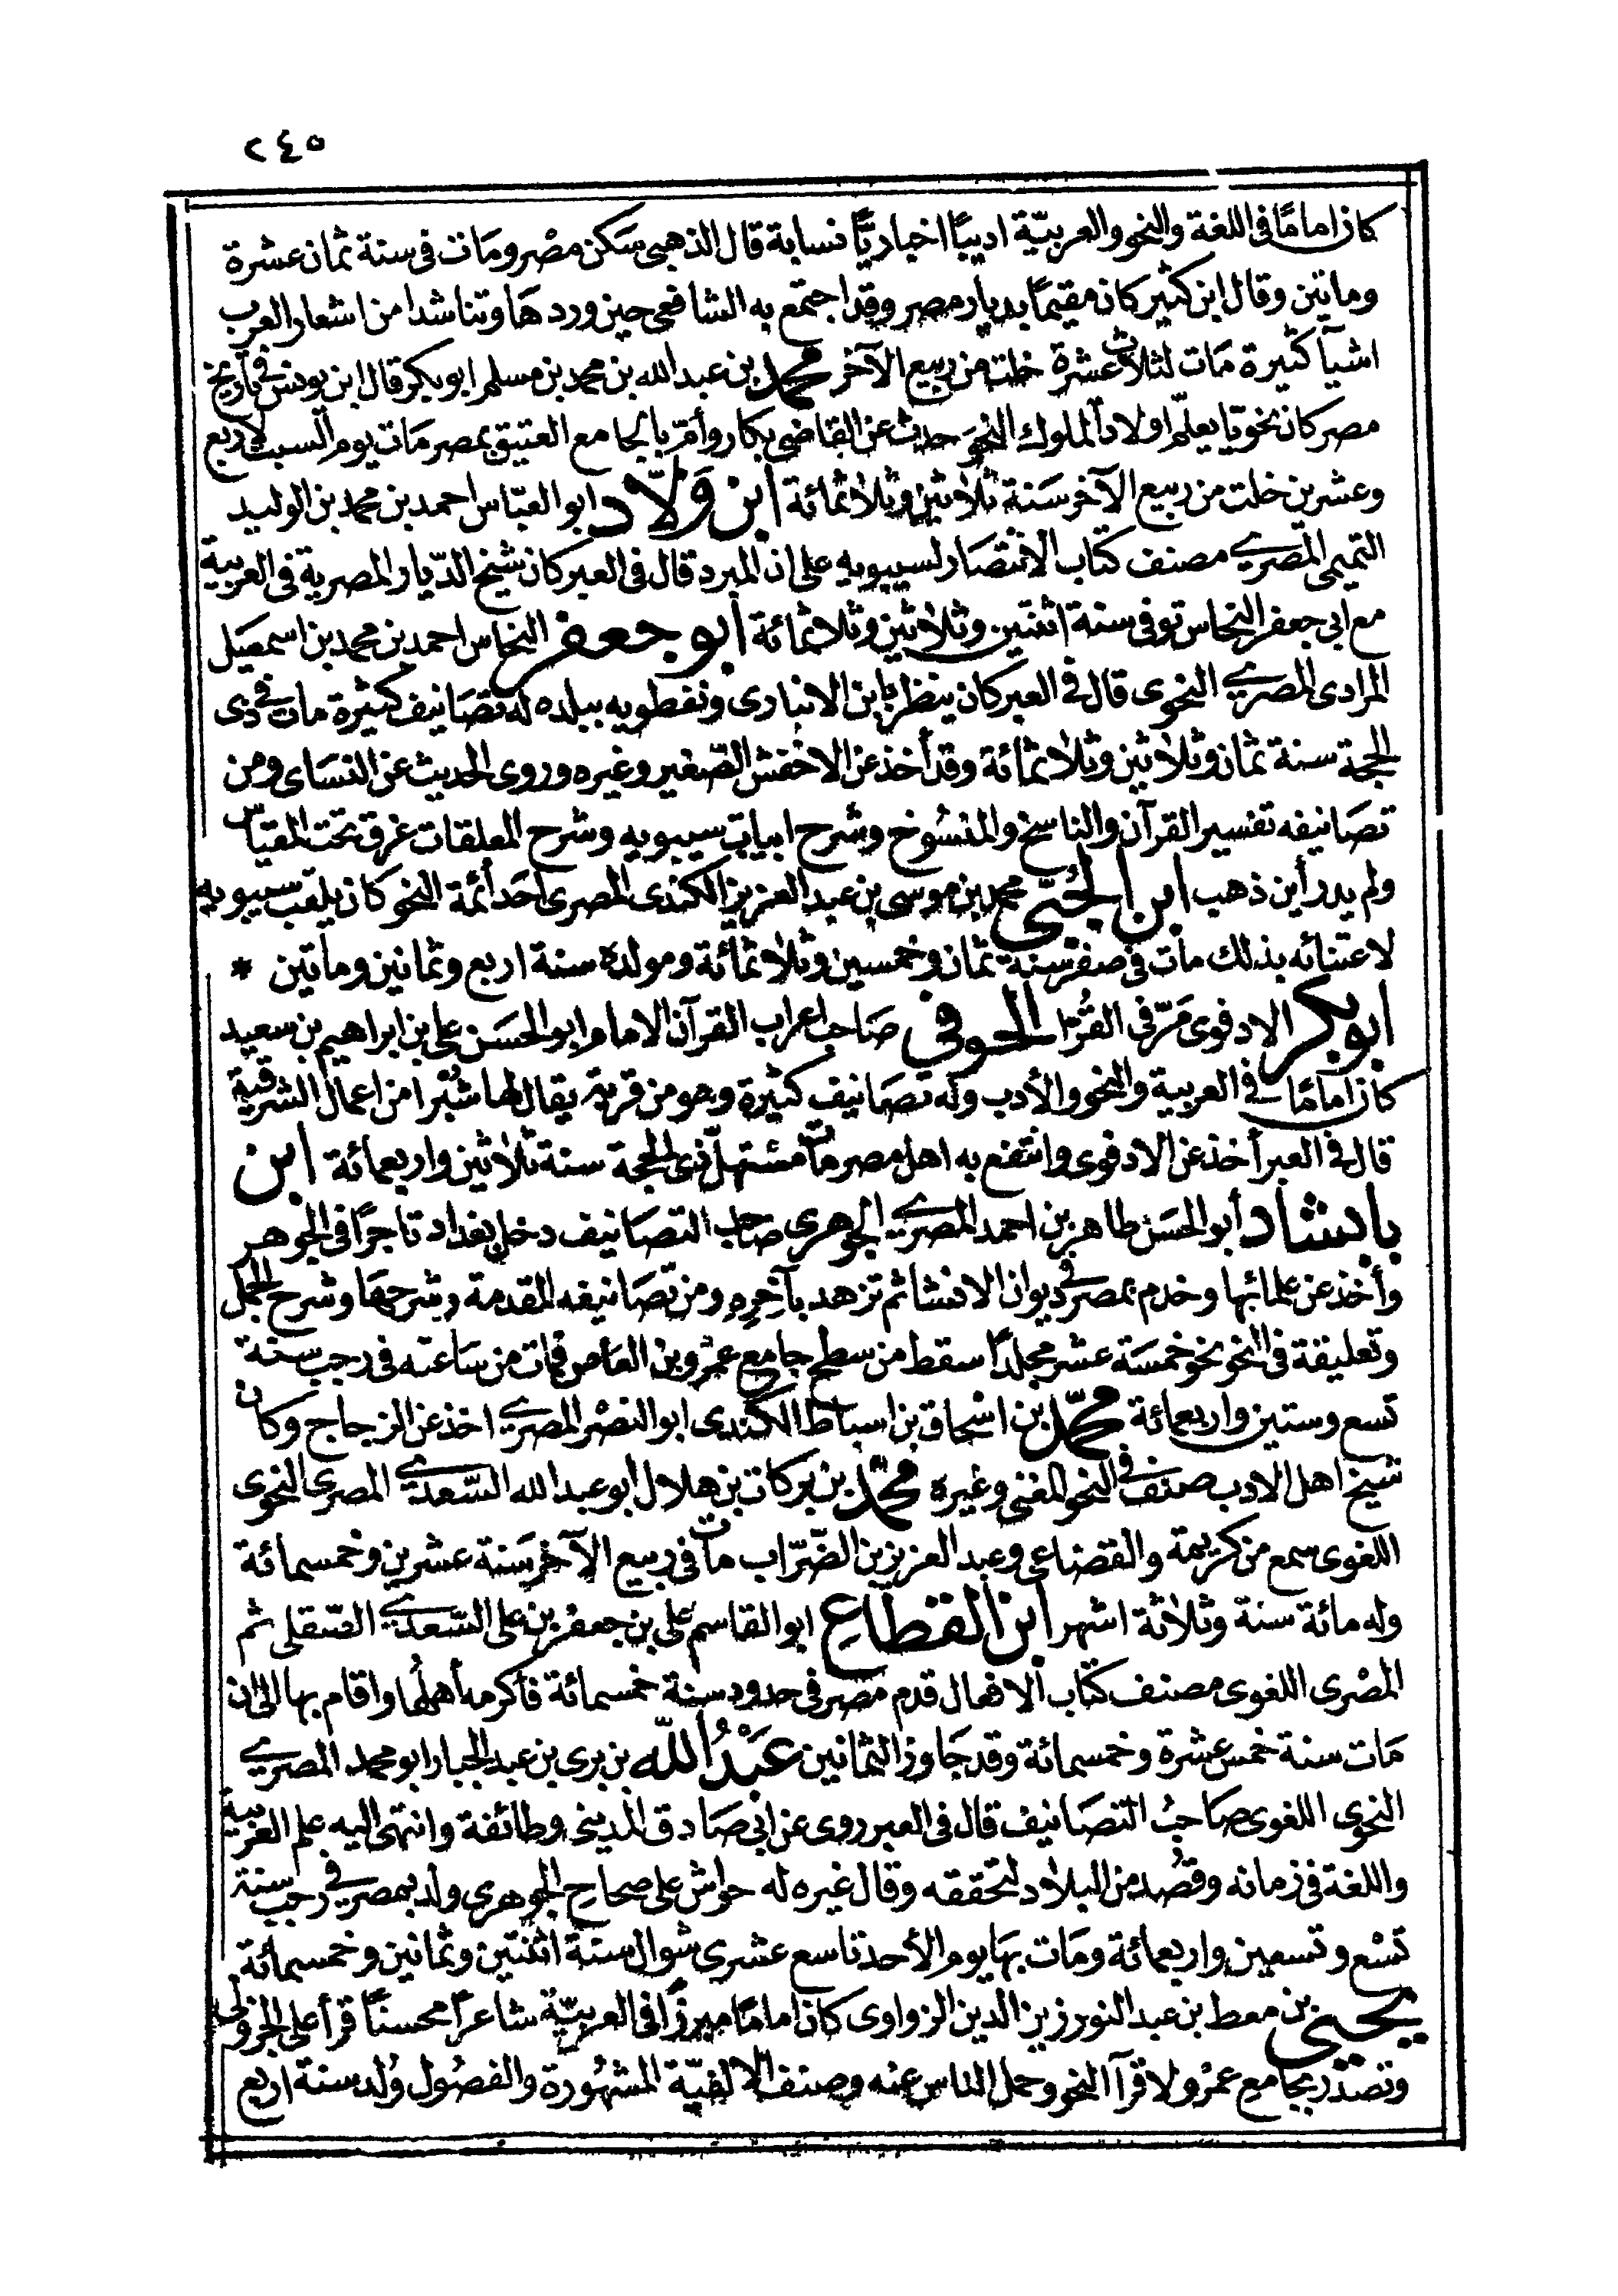 ٢٤٥
كان اماما فى اللغة والنحو والعربيّة اديبًا اخباريًّا نسابة قال الذهبى سكن مصر ومات فى سنة ثمان عشرة
ومايتين وقال ابن كثير كان مقيمًا بديار مصر وقد اجتمع به الشافعى حين وردها وتناشدا من اشعار العرب
اشيآ كثيرة مات لثلاث عشرة خلت من ربيع الآخر محمد بن عبد الله بن محمد بن مسلم ابو بكر قال ابن يونس فى تاريخ
مصر كان نحويّا يعلّم اولاد الملوك النحو حدث عن القاضى بكار وأمّ بالجامع العتيق بمصر مات يوم السبت لاربع
وعشرين خلت من ربيع الآخر سنة ثلاثين وثلاثمائة ابن ولّاد ابو العبّاس احمد بن محمد بن الوليد
التميمى المصرى مصنف كتاب الانتصار لسيبويه على ان المبرد قال فى العبر كان شيخ الدّيار المصرية فى العربية
مع ابى جعفر النحاس توفى سنة اثنتين وثلاثين وثلاثمائة ابو جعفر النحاس احمد بن محمد بن اسمعيل
المرادى المصرى النحوى قال فى العبر كان ينظر بابن الانبارى ونفطويه ببلده له تصانيف كثيرة مات فى ذى
الحجة سنة ثمان وثلاثين وثلاثمائة وقد أخذ عن الاخفش الصّغير وغيره وروى الحديث عن النساى ومن
تصانيفه تفسير القرآن والناسخ والمنسوخ وشرح ابيات سيبويه وشرح المعلقات غرق تحت المقياس
ولم يدر أين ذهب ابن الجُبّى محمد بن موسى بن عبد العزيز الكندى المصرى احد أئمة النحو كان يلقب سيبويه
لاعتنائه بذلك مات فى صفر سنة ثمان وخمسين وثلاثمائة ومولده سنة اربع وثمانين ومايتين *
ابو بكر الادفوى مَرّ فى القُرّا الحوفى صاحب اعراب القرآن الامام ابو الحسن على بن ابراهيم بن سعيد
كان امامًا فى العربية والنحو والأدب وله تصانيف كثيرة وهو من قرية يقال لها شُبْرا من اعمال الشرقية
قال فى العبر أخذ عن الادفوى وانتفع به اهل مصر مات مستهل ذى الحجة سنة ثلاثين واربعمائة ابن
بابشاد أبو الحسن طاهر بن احمد المصرى الجوهرى صاحب التصانيف دخل بغداد تاجرًا فى الجوهر
وأخذ عن علمائها وخدم بمصر فى ديوان الانشا ثم تزهد بآخِرِه ومن تصانيفه المقدمة وشرحها وشرح الجمل
وتعليقة فى النحو نحو خمسة عشر مجلدًا سقط من سطح جامع عمرو بن العاص فمات من ساعته فى رجب سنة
تسع وستين واربعمائة محمّد بن اسحاق بن اسباط الكندى ابو النصْر المصرى اخذ عن الزجاج وكان
شيخ اهل الادب صنف فى النحو المغنى وغيره محمّد بن بركات بن هلال ابو عبد الله السّعدى المصرى النحوى
اللغوى سمع من كريمة والقضاعى وعبد العزيز بن الضّرّاب مات فى ربيع الآخر سنة عشرين وخمسمائة
وله مائة سنة وثلاثة اشهر ابن القطاع ابو القاسم على بن جعفر بن على السّعدى الصّقلى ثم
المصْرى اللغوى مصنف كتاب الافعال قدم مصر فى حدود سنة خمسمائة فأكرمه أهلها واقام بها الى ان
مات سنة خمس عشرة وخمسمائة وقد جاوز الثمانين عبْدُ اللّه بن برى بن عبد الجبار ابو محمد المصرى
النحوى اللغوى صاحب التصانيف قال فى العبر روى عن ابى صادق المدينى وطائفة وانتهى اليه علم العربية
واللغة فى زمانه وقُصُد من البلاد لتحققه وقال غيره له حواش على صحاح الجوهرى ولد بمصر فى رجب سنة
تسْع وتسعين واربعمائة ومات بها يوم الأحد تاسع عشرى شوال سنة اثنتين وثمانين وخمسمائة
يحيى بن معط بن عبد النور زين الدين الزواوى كان امامًا مبرزًا فى العربيّة شاعرًا محسنًا قرأ على الجزولى
وتصدّر بجامع عمرو لاقرآ النحو وحمل الناس عنه وصنف الالفيّة المشهُورة والفصُول وُلد سنة اربع